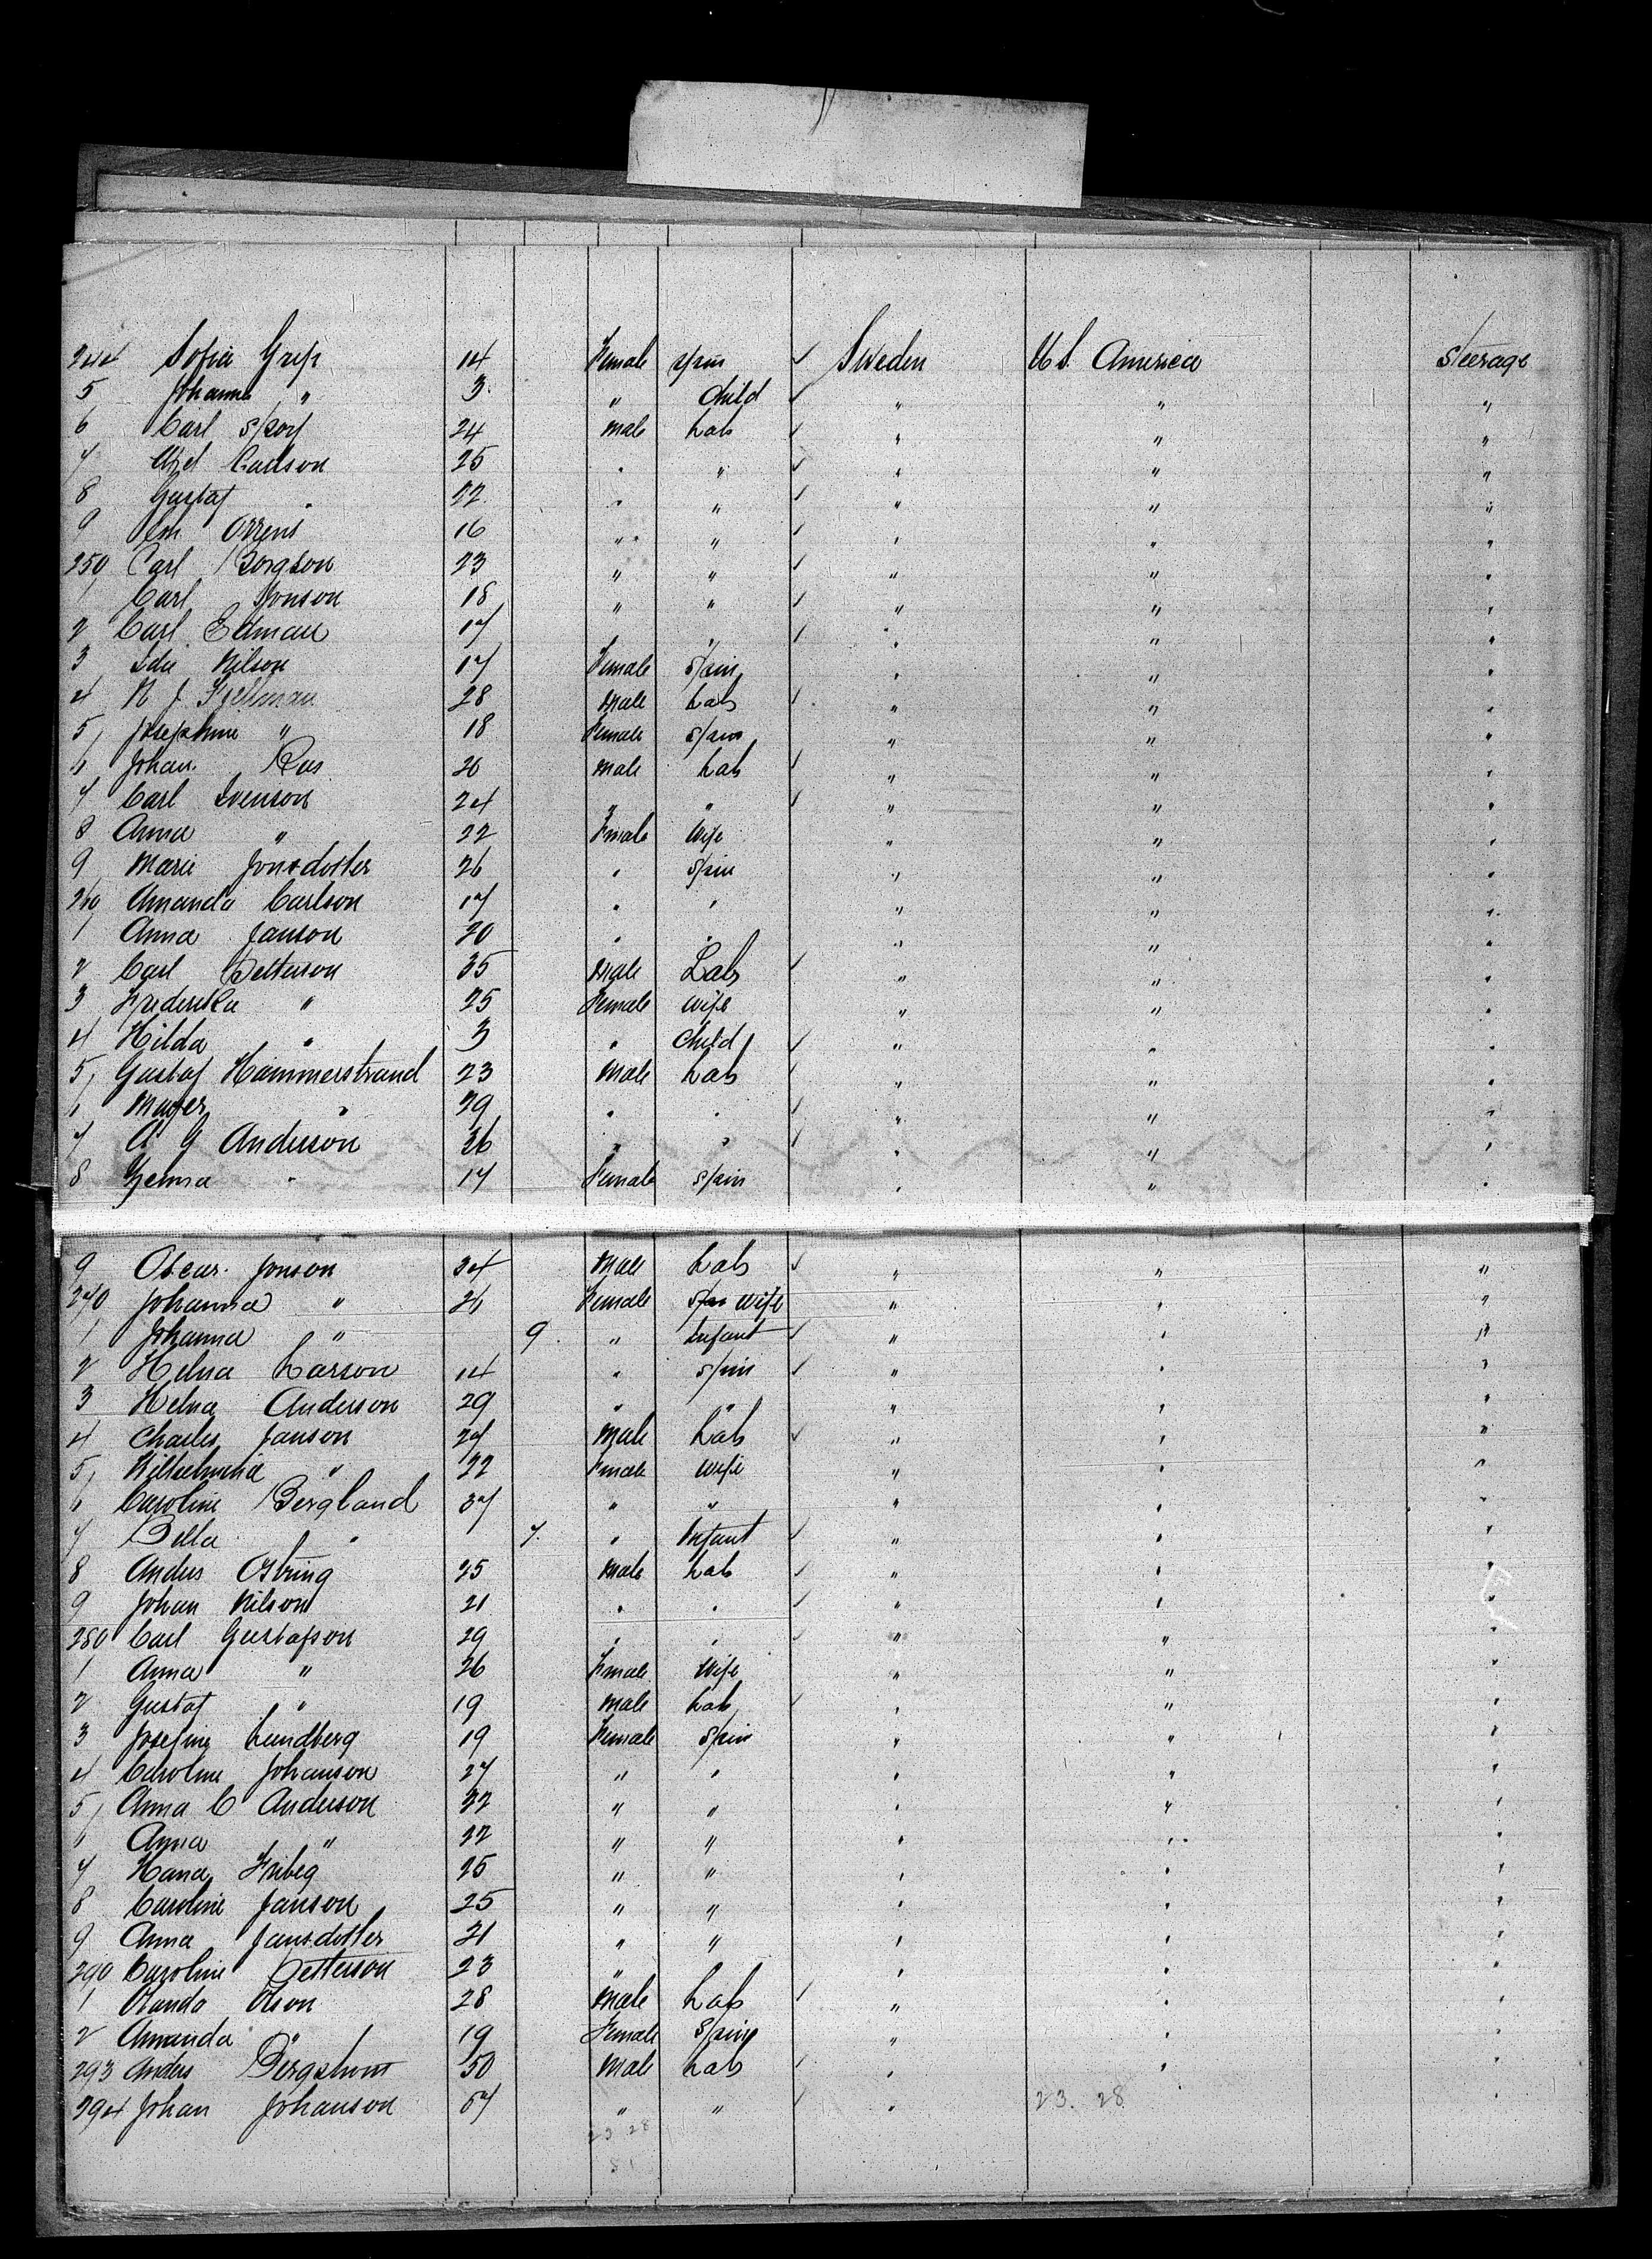 244 Sofia Grip 14 Female spin ✓ Sweden U S. America Steerage
5 Johanna " 3 " Child ✓ " " "
6 Carl 24 male Lab ✓ " " "
7 Axel Carlson 25 " " ✓ " " "
8 Gustaf " 22 " " ✓ " " "
9 16 " " ✓ " " "
250 Carl Borgson 23 " " ✓ " " "
1 Carl Jonson 18 " " ✓ " " "
2 Carl Edman 17 " " ✓ " " "
3 Ida Nilson 17 Female Spin " " "
4 N J 28 male Lab ✓ " " "
5 Josephine " 18 Female Spin " " "
6 Johan 26 male Lab ✓ " " "
7 Carl Svenson 24 " " ✓ " " "
8 Anna " 22 Female Wife " " "
9 Marie Jonsdotter 26 " Spin " " "
260 Amanda Carlson 17 " " " " "
1 Anna Janson 20 " " " " "
2 Carl Petterson 35 male Lab ✓ " " "
3 Frederika " 25 Female wife " " "
4 Hilda " 3 " Child ✓ " " "
5 Gustaf Hammerstrand 23 male Lab ✓ " " "
6 " 29 " " ✓ " " "
7 A G Anderson 36 " " ✓ " " "
8 " 17 Female Spin " " "
9 Oscar Jonson 34 male Lab ✓ " " "
270 Johanna " 26 Female wife " " "
1 Johanna " 9 " Infant ✓ " " "
2 Helna Larson 14 " Spin ✓ " " "
3 Helna Anderson 29 " " " " "
4 Charles Janson 27 male Lab ✓ " " "
5 Wilhelmina " 22 Female Wife " " "
6 Caroline Bergland 37 " " " " "
7 " 7 " Infant ✓ " " "
8 Anders Ostring 25 male Lab ✓ " " "
9 Johan Nilson 21 " " ✓ " " "
280 Carl Gustafson 29 " " ✓ " " "
1 Anna " 26 Female Wife " " "
2 Gustaf " 19 male Lab ✓ " " "
3 Josefine Lundberg 19 Female Spin " " "
4 Caroline Johanson 27 " " " " "
5 Anna C Anderson 32 " " " " "
6 Anna " 22 " " " " "
7 Hana Fribeg 25 " " " " "
8 Caroline Janson 25 " " " " "
9 Anna Jansdotter 21 " " " " "
290 Caroline Petterson 23 " " " " "
1 Olson 28 male Lab ✓ " " "
2 Amanda " 19 Female Spin " " "
293 Anders Bergstrom 50 male Lab ✓ " " "
294 Johan Johanson 57 " " ✓ " 23. 28 "
23 28
51